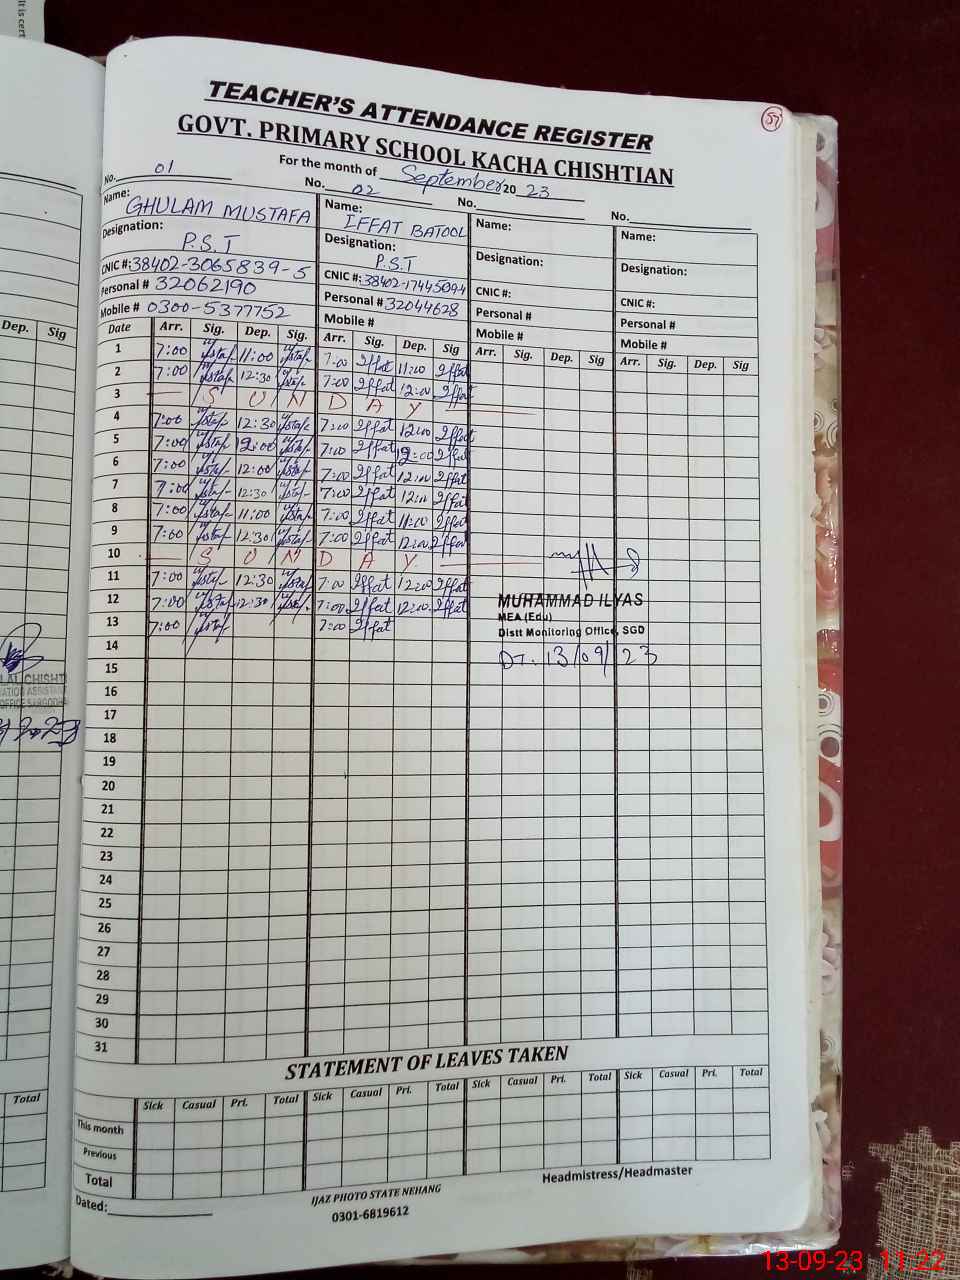 It is cert
57
TEACHER'S ATTENDANCE REGISTER
GOVT. PRIMARY SCHOOL KACHA CHISHTIAN
For the month of September 20 23
No. 01 No. 02 No. No.
Name: GHULAM MUSTAFA Name: IFFAT BATOOL Name: Name:
Designation: P.S.T Designation: P.S.T Designation: Designation:
CNIC #: 38402-3065839-5 CNIC #: 38402-1744509-4 CNIC #: CNIC #:
Personal # 32062190 Personal # 32044628 Personal # Personal #
Mobile # 0300-5377752 Mobile # Mobile # Mobile #
Dep. Sig
Date Arr. Sig. Dep. Sig. Arr. Sig. Dep. Sig Arr. Sig. Dep. Sig Arr. Sig. Dep. Sig
1 7:00 11:00 7:00 Iffat 11:00 Iffat
2 7:00 12:30 7:00 Iffat 12:00 Iffat
3 S U N D A Y
4 7:00 12:30 7:00 Iffat 12:00 Iffat
5 7:00 12:00 7:00 Iffat 12:00 Iffat
6 7:00 12:00 7:00 Iffat 12:00 Iffat
7 7:00 12:30 7:00 Iffat 12:00 Iffat
8 7:00 11:00 7:00 Iffat 11:00 Iffat
9 7:00 12:30 7:00 Iffat 12:00 Iffat
10 S U N D A Y
11 7:00 12:30 7:00 Iffat 12:00 Iffat
12 7:00 12:30 7:00 Iffat 12:00 Iffat
13 7:00 7:00 Iffat
MUHAMMAD ILYAS
MEA (Edu)
Distt Monitoring Office, SGD
DT. 13/09/23
LAL CHISHTI
ATION ASSISTANT
OFFICE SARGODHA
14
15
16
17
18
19
20
21
22
23
24
25
26
27
28
29
30
31
STATEMENT OF LEAVES TAKEN
Total
Sick Casual Pri. Total Sick Casual Pri. Total Sick Casual Pri. Total Sick Casual Pri. Total
This month
Previous
Total
Headmistress/Headmaster
Dated:
IJAZ PHOTO STATE NEHANG
0301-6819612
13-09-23 11:22